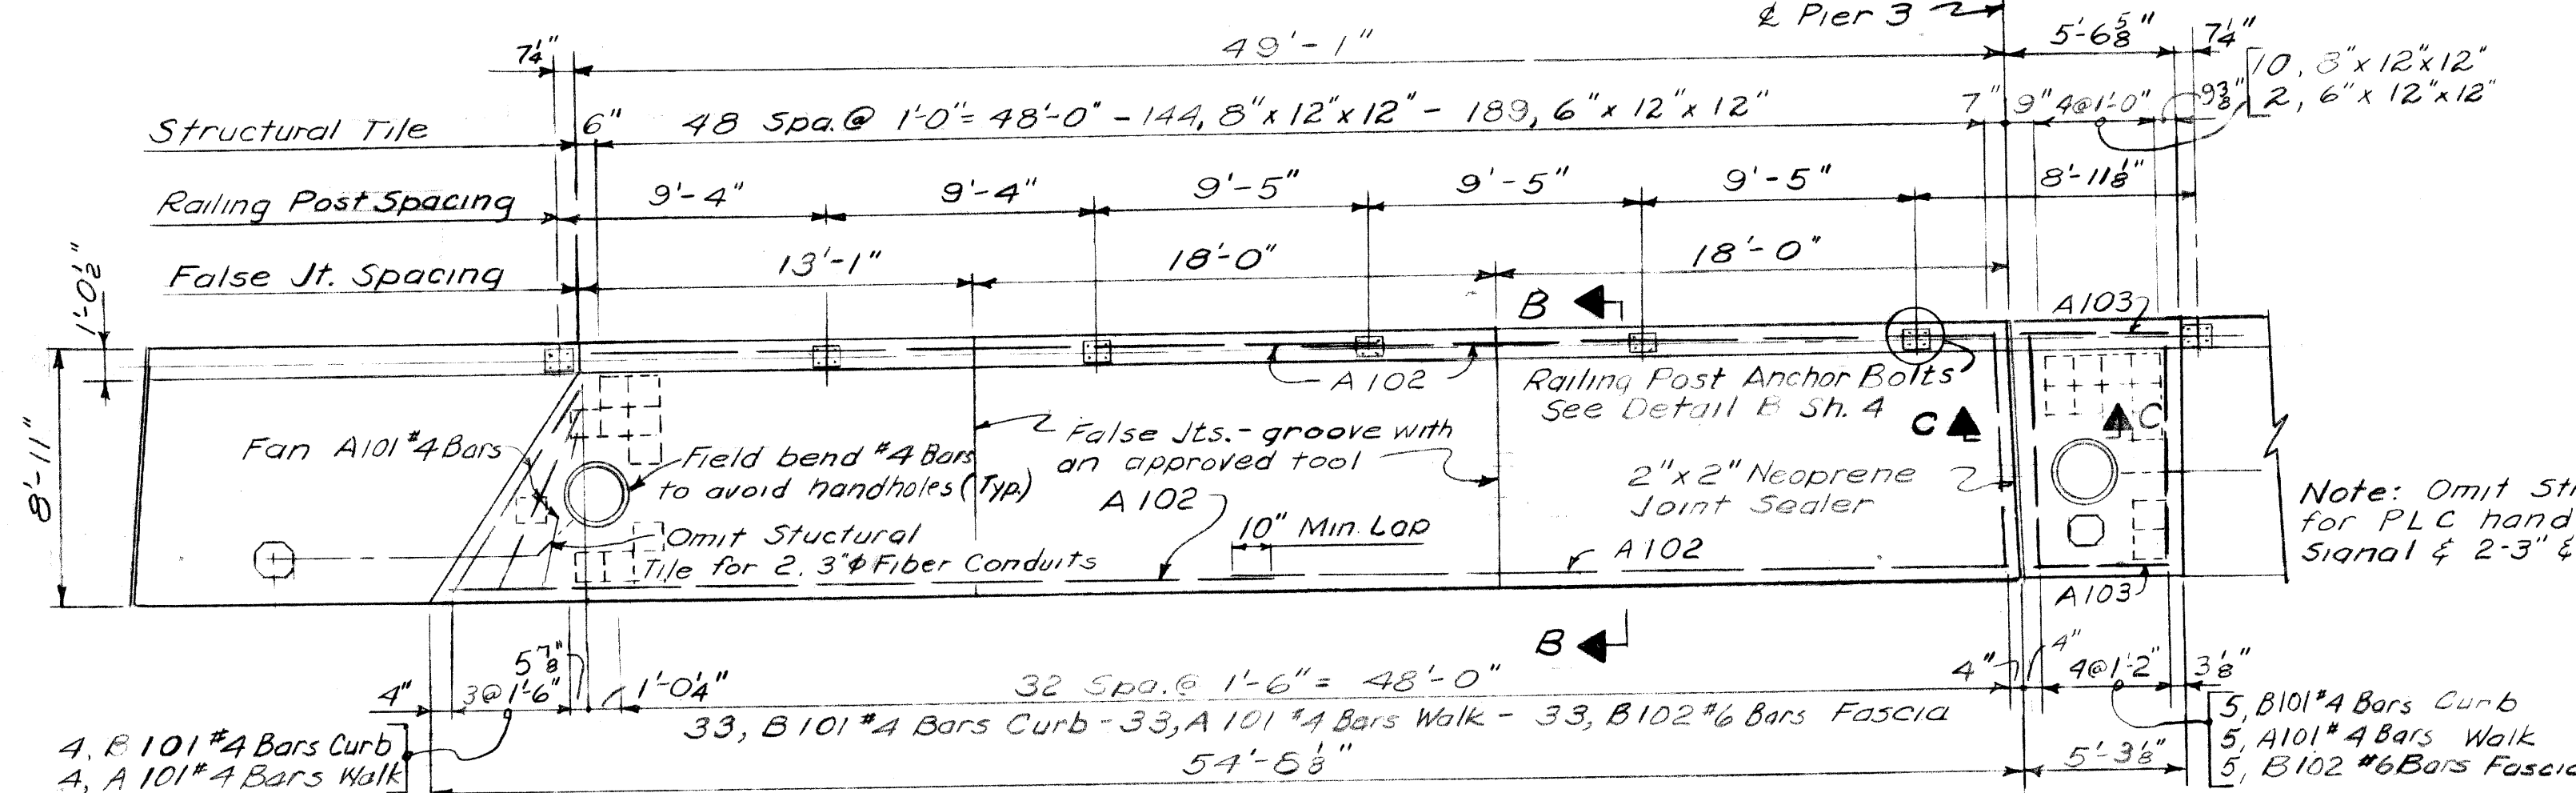 ℄ Pier 3
7¼"
49'-1"
5'-6⅝"
7¼"
Structural Tile
6"
48 Spa.@ 1'-0"= 48'-0" - 144, 8"x12"x12" - 189, 6"x12"x12"
7"
9"
4@1'-0"
9⅜"
10, 8"x12"x12"
2, 6"x12"x12"
Railing Post Spacing
9'-4"
9'-4"
9'-5"
9'-5"
9'-5"
8'-11⅛"
False Jt. Spacing
13'-1"
18'-0"
18'-0"
1'-0½"
8'-11"
B
A103
A102
Railing Post Anchor Bolts
See Detail B Sh. 4
C
C
Fan A101 #4 Bars
Field bend #4 Bars
to avoid handholes (Typ.)
False Jts.- groove with
an approved tool
A102
2"x2" Neoprene
Joint Sealer
Omit Stuctural
Tile for 2, 3"φ Fiber Conduits
10" Min. Lap
A102
Note: Omit
for PLC hand
Signal & 2-3" &
A103
B
4"
3@1'-6"
5⅞"
1'-0¼"
32 Spa.@ 1'-6"= 48'-0"
4"
4"
4@1'-2"
3⅛"
33, B101 #4 Bars Curb - 33, A101 #4 Bars Walk - 33, B102 #6 Bars Fascia
4, B101 #4 Bars Curb
4, A101 #4 Bars Walk
5'-3⅛"
5, B101 #4 Bars Curb
5, A101 #4 Bars Walk
5, B102 #6 Bars Fascia